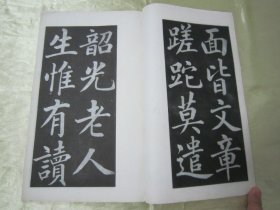 面皆文章
蹉跎莫遣
韶光老人
生惟有讀